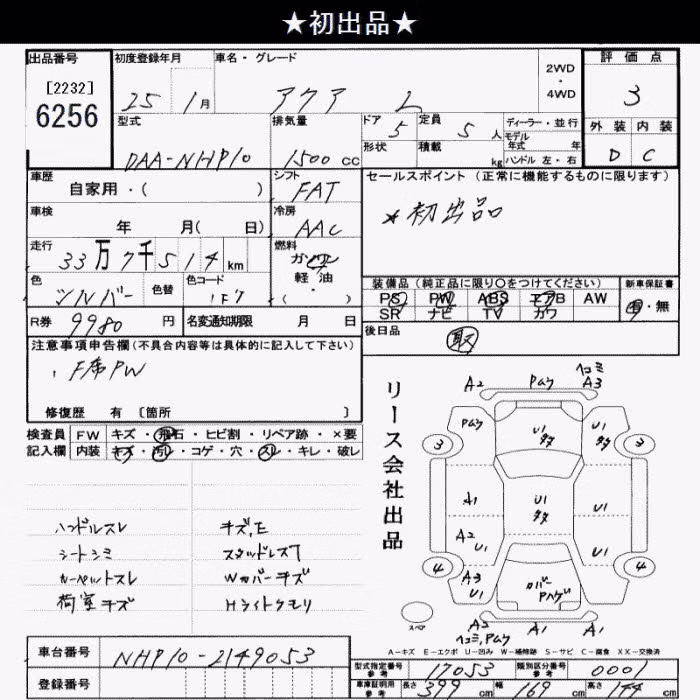 ★初出品★
出品番号 初度登録年月 車名・グレード 2WD・4WD 評価点
[2232] 6256 25 1月 アクア L 3
型式 排気量 ドア 5 定員 5人 ディーラー・並行 外装 内装
DAA-NHP10 1500cc 形状 積載 kg モデル年式 年 D C
ハンドル 左・右
車歴 シフト セールスポイント (正常に機能するものに限ります)
自家用・( ) FAT
車検 冷房 ★初出品
年 月( 日) AAC
走行 燃料
33万7千514km ガソリン 軽油・( )
色 色替 色コード 装備品 (純正品に限り○をつけてください) 新車保証書
シルバー 1F7 PS PW ABS エアB AW 有・無
SR ナビ TV カワ
R券 9980円 名変通知期限 月 日 後日品 取
注意事項申告欄 (不具合内容等は具体的に記入して下さい)
F席PW
修復歴 有 〔箇所 〕
検査員 FW キズ・飛石・ヒビ割・リペア跡・×要
記入欄 内装 キズ・汚れ・コゲ・穴・スレ・キレ・破レ
リース会社出品
ハンドルスレ キズ,E
シートシミ スタッドレス7
カーペットスレ Wカバーキズ
荷室キズ Hライトクモリ
A2 Pムケ ヘコミ A3
Pムケ U1 タタ U1
3 3
A1 U1 タタ U1
A2 U1
4 4
A3 U1 カバー Pハゲ U1
スペア
A2 ヘコミ,Pムケ A1 A1
A－キズ E－エクボ U－凹み W－補修跡 S－サビ C－腐食 XX－交換済
車台番号 NHP10-2149053
登録番号
型式指定番号 参考 17053 類別区分番号 参考 0001
車庫証明用 参考 長さ 399cm 幅 169cm 高さ 144cm